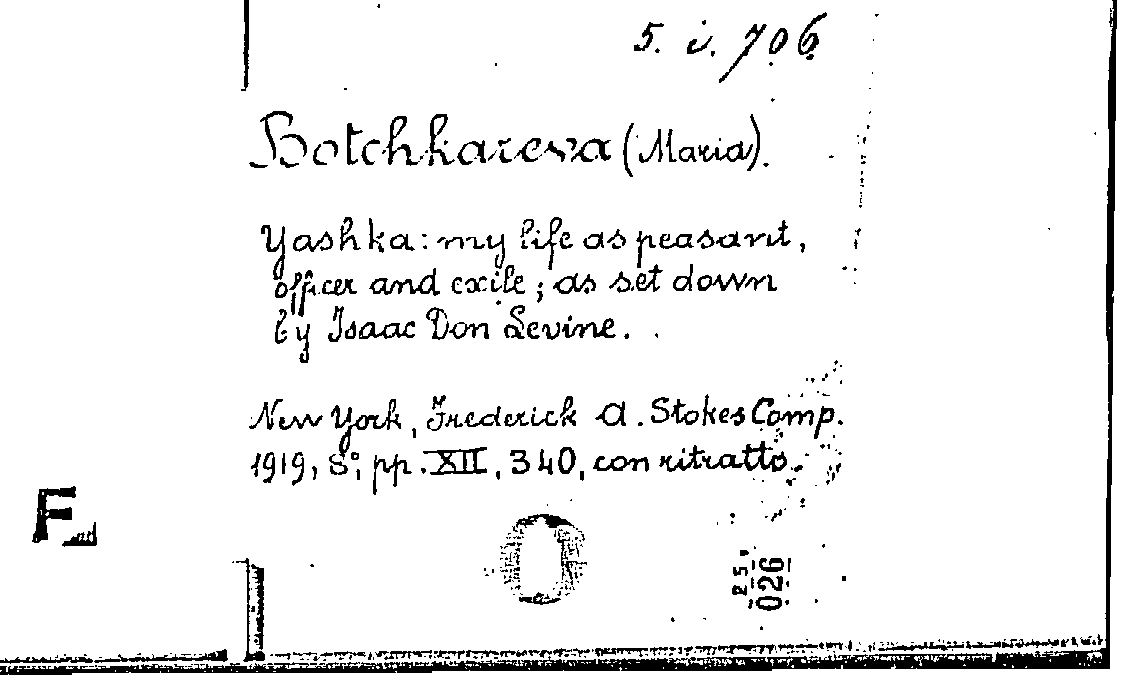 5. i. 706
Botchkareva (Maria).
Yashka: my life as peasant,
officer and exile; as set down
by Isaac Don Levine.
New York, Frederick A. Stokes Comp.
1919, 8°, pp. XII, 340, con ritratto.
F
O
026